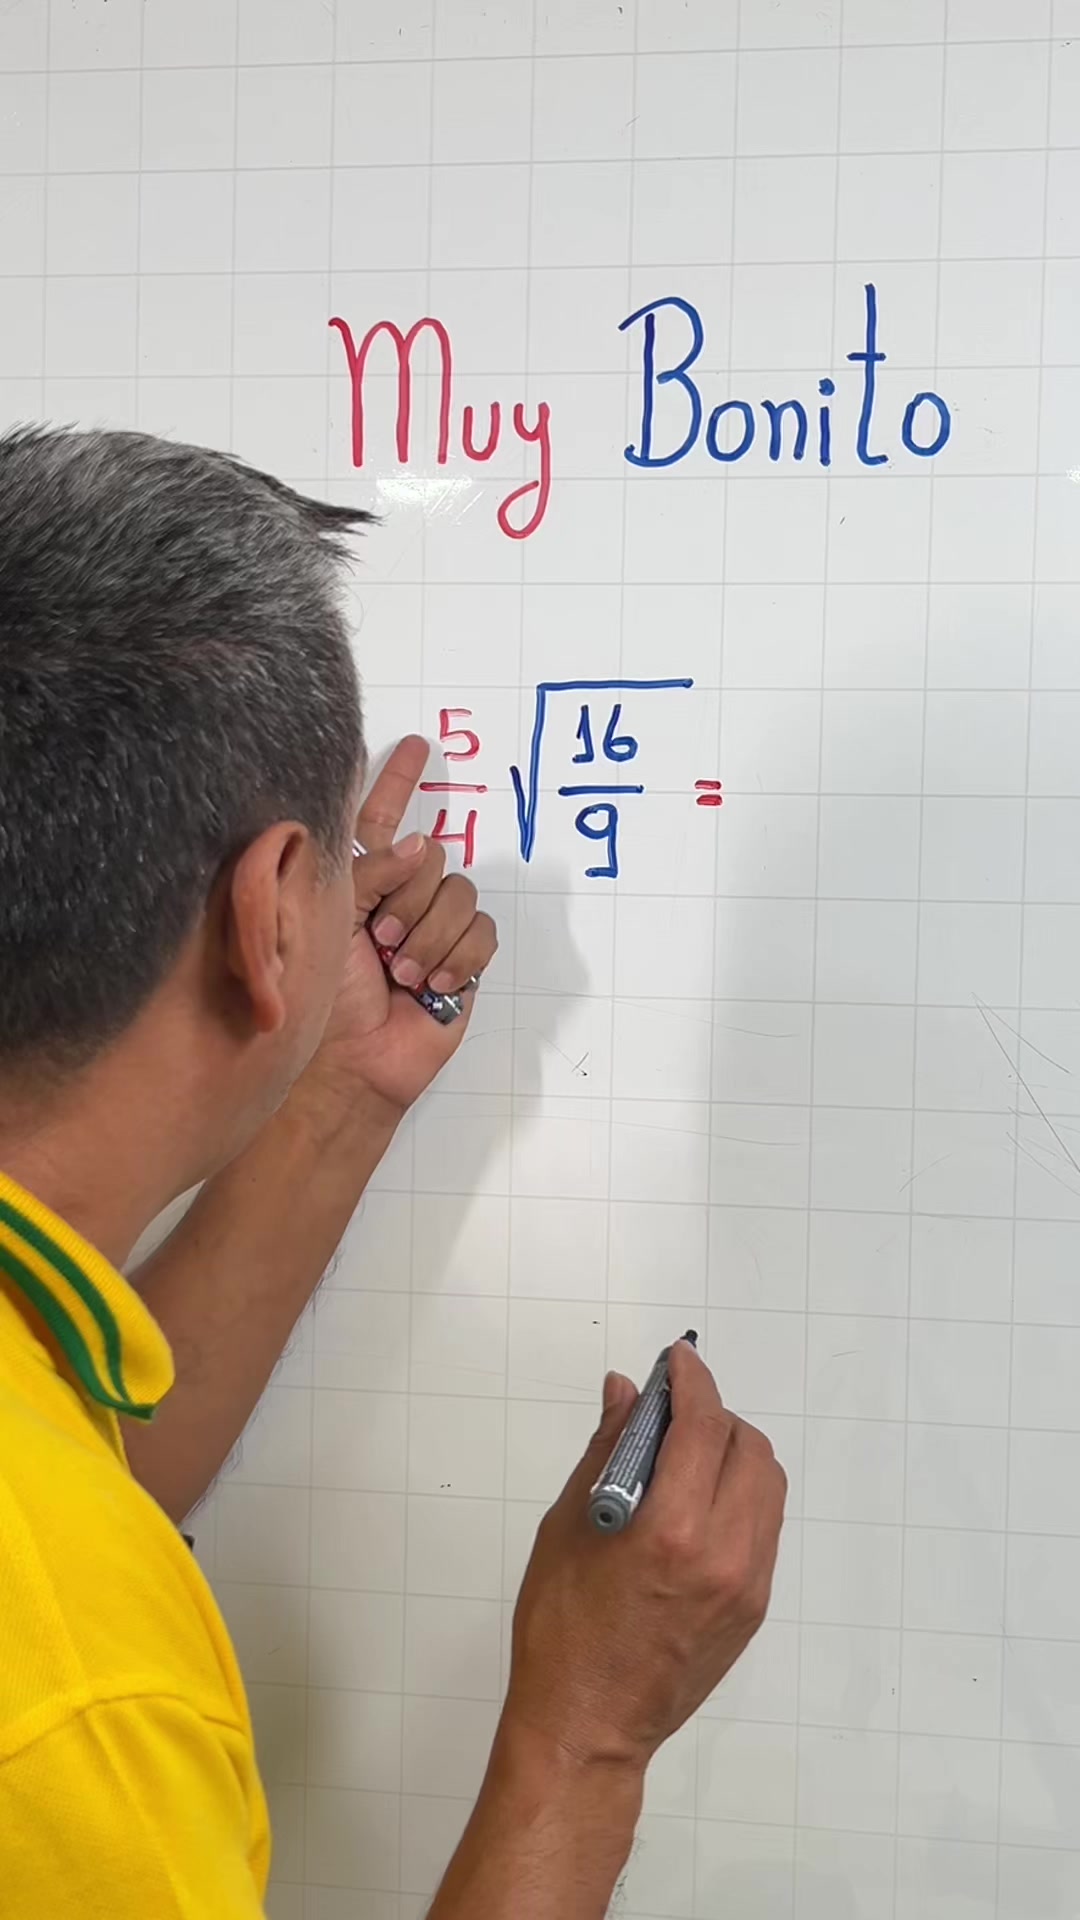 Muy Bonito
5/4 √16/9 =